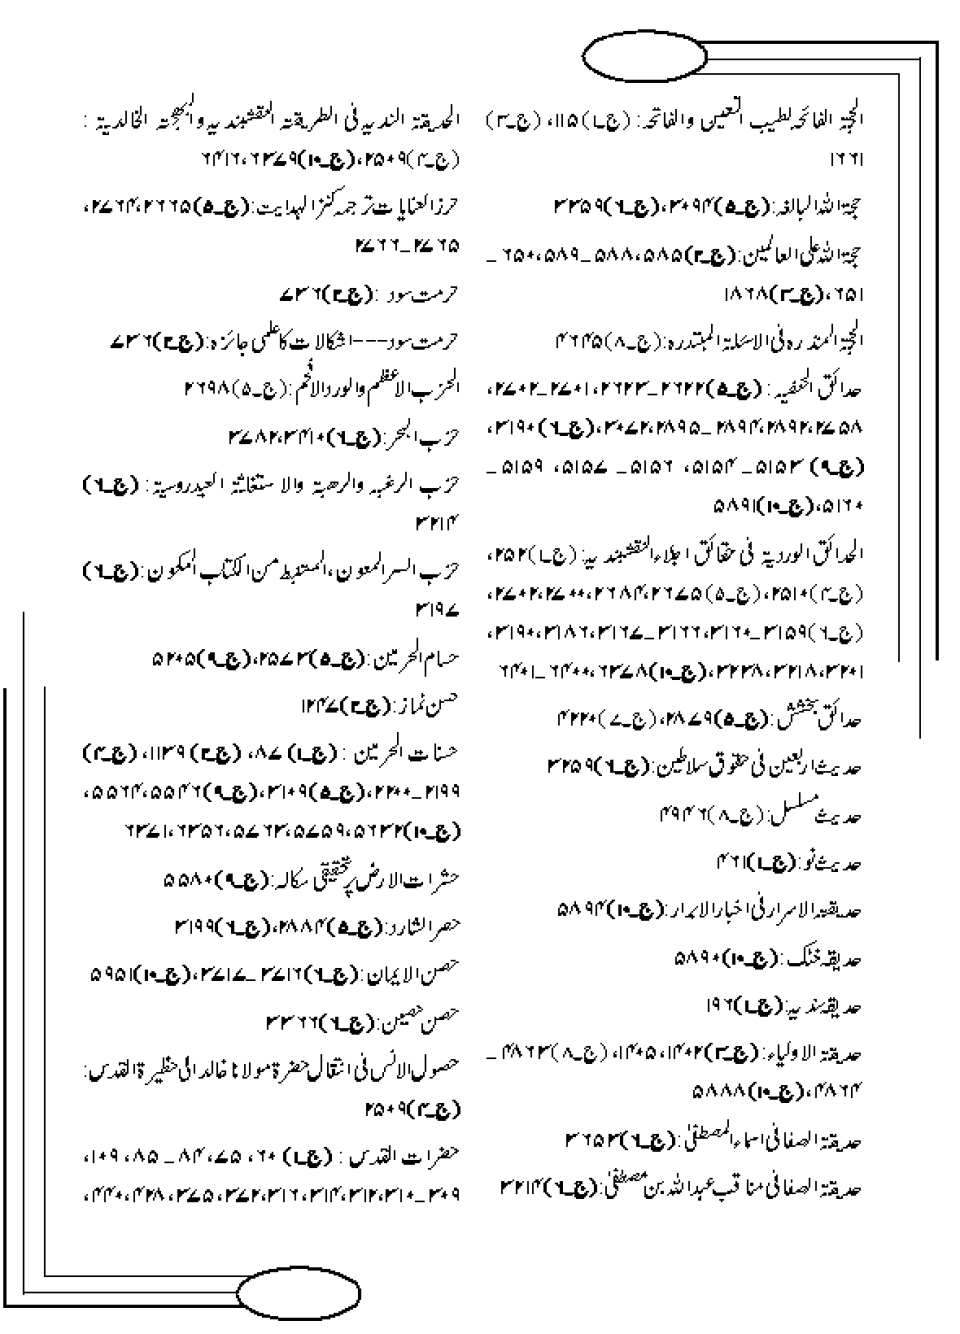 الحجۃ الفائحہ لطیب التعین والفاتحہ: (ج۔۱)۱۱۵، (ج۔۳)
۱۶۶۱
حجۃ اللہ البالغہ:(ج۔۵)۳۰۹۴،(ج۔۶)۳۳۵۹
حجۃ اللہ علی العالمین:(ج۔۲)۵۸۵،۵۸۸۔۵۸۹،۶۵۰۔
۶۵۱،(ج۔۳)۱۸۶۸
الحجۃ المندرہ فی الاسئلۃ المبتدرہ:(ج۔۸)۴۶۴۵
حدائق الحنفیہ: (ج۔۵)۲۶۲۲۔۲۶۲۳،۲۷۰۱۔۲۷۰۲،
۲۷۵۸،۲۸۹۲،۲۸۹۴۔۲۸۹۵،۳۰۷۲،(ج۔۶)۳۱۹۰،
(ج۔۹) ۵۱۵۳۔۵۱۵۴، ۵۱۵۶۔۵۱۵۷، ۵۱۵۹۔
۵۱۶۰،(ج۔۱۰)۵۸۹۱
الحدائق الوردیۃ فی حقائق اجلاء النقشبندیہ: (ج۔۱)۲۵۲،
(ج۔۴)۲۵۱۰،(ج۔۵)۲۶۷۵،۲۶۸۴،۲۷۰۰،۲۷۰۲،
(ج۔۶)۳۱۵۹۔۳۱۶۰،۳۱۶۶۔۳۱۶۷،۳۱۸۶،۳۱۹۰،
۳۲۰۱،۳۲۱۸،۳۲۲۸،(ج۔۱۰)۶۳۷۸،۶۴۰۰۔۶۴۰۱
حدائق بخشش:(ج۔۵)۲۸۷۹،(ج۔۷)۴۲۲۰
حدیث اربعین فی حقوق سلاطین:(ج۔۶)۳۲۵۹
حدیث مسلسل:(ج۔۸)۴۹۴۶
حدیث نو:(ج۔۱)۴۶۱
حدیقۃ الاسرار فی اخبار الابرار:(ج۔۱۰)۵۸۹۴
حدیقہ خٹک:(ج۔۱۰)۵۸۹۰
حدیقہ ندیہ:(ج۔۱)۱۹۶
حدیقۃ الاولیاء:(ج۔۳)۱۴۰۲،۱۴۰۵،(ج۔۸)۴۸۶۳۔
۴۸۶۴،(ج۔۱۰)۵۸۸۸
حدیقۃ الصفا فی اسماء المصطفیٰ:(ج۔۶)۳۶۵۳
حدیقۃ الصفا فی مناقب عبد اللہ بن مصطفیٰ:(ج۔۶)۳۲۱۴
الحدیقۃ الندیہ فی الطریقۃ النقشبندیہ والبھجۃ الخالدیۃ :
(ج۔۴)۲۵۰۹،(ج۔۱۰)۶۳۷۹،۶۴۱۶
حرز العنایات ترجمہ کنز الہدایت:(ج۔۵)۲۶۶۵،۲۷۶۴،
۲۷۶۵۔۲۷۶۶
حرمت سود :(ج۔۲)۷۳۶
حرمت سود---اشکالات کا علمی جائزہ:(ج۔۲)۷۳۶
الحزب الاعظم والورد الافخم:(ج۔۵)۲۶۹۸
حزب البحر:(ج۔۶)۳۴۱۰،۳۷۸۲
حزب الرغبہ والرھبۃ والاستغاثۃ العیدروسیۃ: (ج۔۶)
۳۲۱۴
حزب السر المعون،المستنبط من الکتاب المکنون:(ج۔۶)
۳۱۹۷
حسام الحرمین:(ج۔۵)۲۵۷۳،(ج۔۹)۵۲۰۵
حسن نماز:(ج۔۲)۱۲۴۷
حسنات الحرمین : (ج۔۱)۸۷، (ج۔۲)۱۱۳۹، (ج۔۴)
۲۱۹۹۔۲۲۰۰،(ج۔۵)۳۱۰۹،(ج۔۹)۵۵۴۶،۵۵۶۴،
(ج۔۱۰)۵۶۳۲،۵۷۵۹،۵۷۶۳،۶۳۵۶،۶۳۷۱
حشرات الارض پر تحقیقی مکالہ:(ج۔۹)۵۵۸۰
حصر الشارد:(ج۔۵)۲۸۸۴،(ج۔۶)۳۱۹۹
حصن الایمان:(ج۔۶)۳۷۱۶۔۳۷۱۷،(ج۔۱۰)۵۹۵۱
حصن حصین:(ج۔۶)۳۳۶۶
حصول الانس فی انتقال حضرۃ مولانا خالد الی حظیرۃ القدس:
(ج۔۴)۲۵۰۹
حضرات القدس: (ج۔۱) ۶۰، ۷۵،۸۴۔۸۵، ۱۰۹،
۳۰۹۔۳۱۰،۳۱۲،۳۱۴،۳۱۶،۳۷۲،۳۷۵،۴۲۸،۴۴۰،